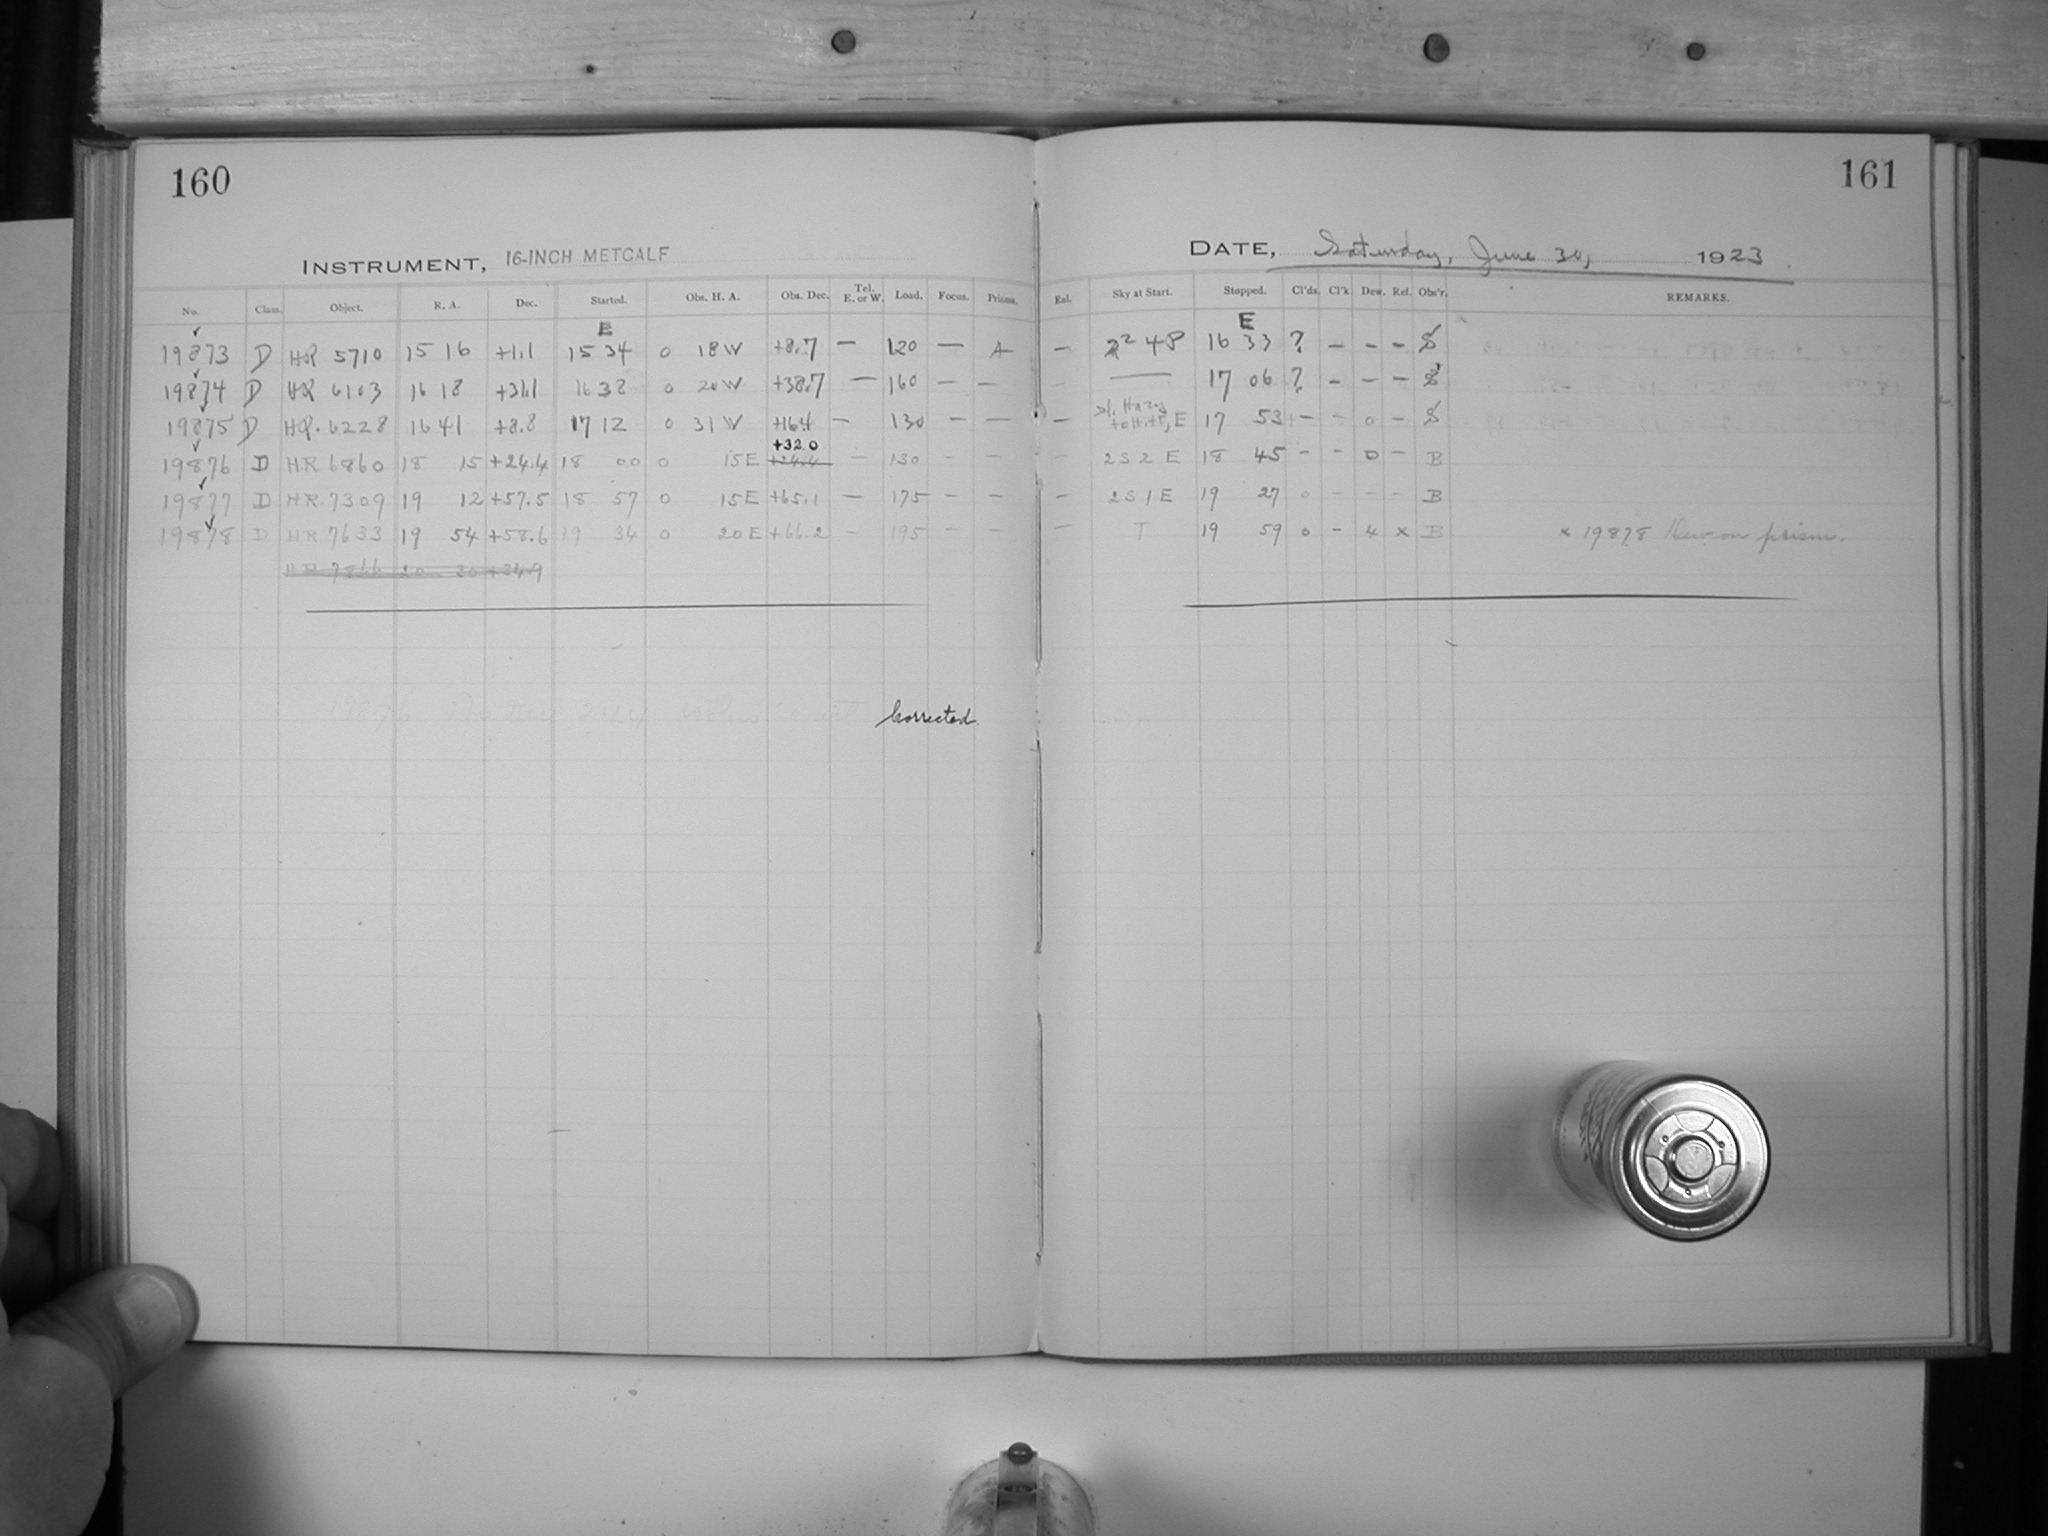 160
INSTRUMENT, 16-INCH METCALF
No. Class. Object. R. A. Dec. Started. Obs. H. A. Obs. Dec. Tel. E. or W. Load. Focus. Prisms.
E
19873 D HR 5710 15 16 +1.1 15 34 0 18 W +8.7 — 120 — A
19874 D HR 6103 16 18 +31.1 16 38 0 20 W +38.7 — 160 — —
19875 D HR. 6228 16 41 +8.8 17 12 0 31 W +16.4 — 130 — —
+32.0
19876 D HR 6860 18 15 +24.4 18 00 0 15 E +24.4 — 130 — —
19877 D HR. 7309 19 12 +57.5 18 57 0 15 E +65.1 — 175 — —
19878 D HR 7633 19 54 +58.6 19 34 0 20 E +66.2 — 195 — —
HR 7866 20 30 +34.9
19876
Corrected
161
DATE, Saturday, June 30, 1923
Enl. Sky at Start. Stopped. Cl'ds. Cl'k. Dew. Ref. Obs'r. REMARKS.
E
— 2 4 P 16 33 ? - - - S
— 17 06 ? - - - S
— sl. Hazy E 17 53 - - 0 - S
— 2 S 2 E 18 45 - - 0 - B
— 2 S 1 E 19 27 0 - - - B
— T 19 59 0 - 4 x B x 19878 Dew on prism.